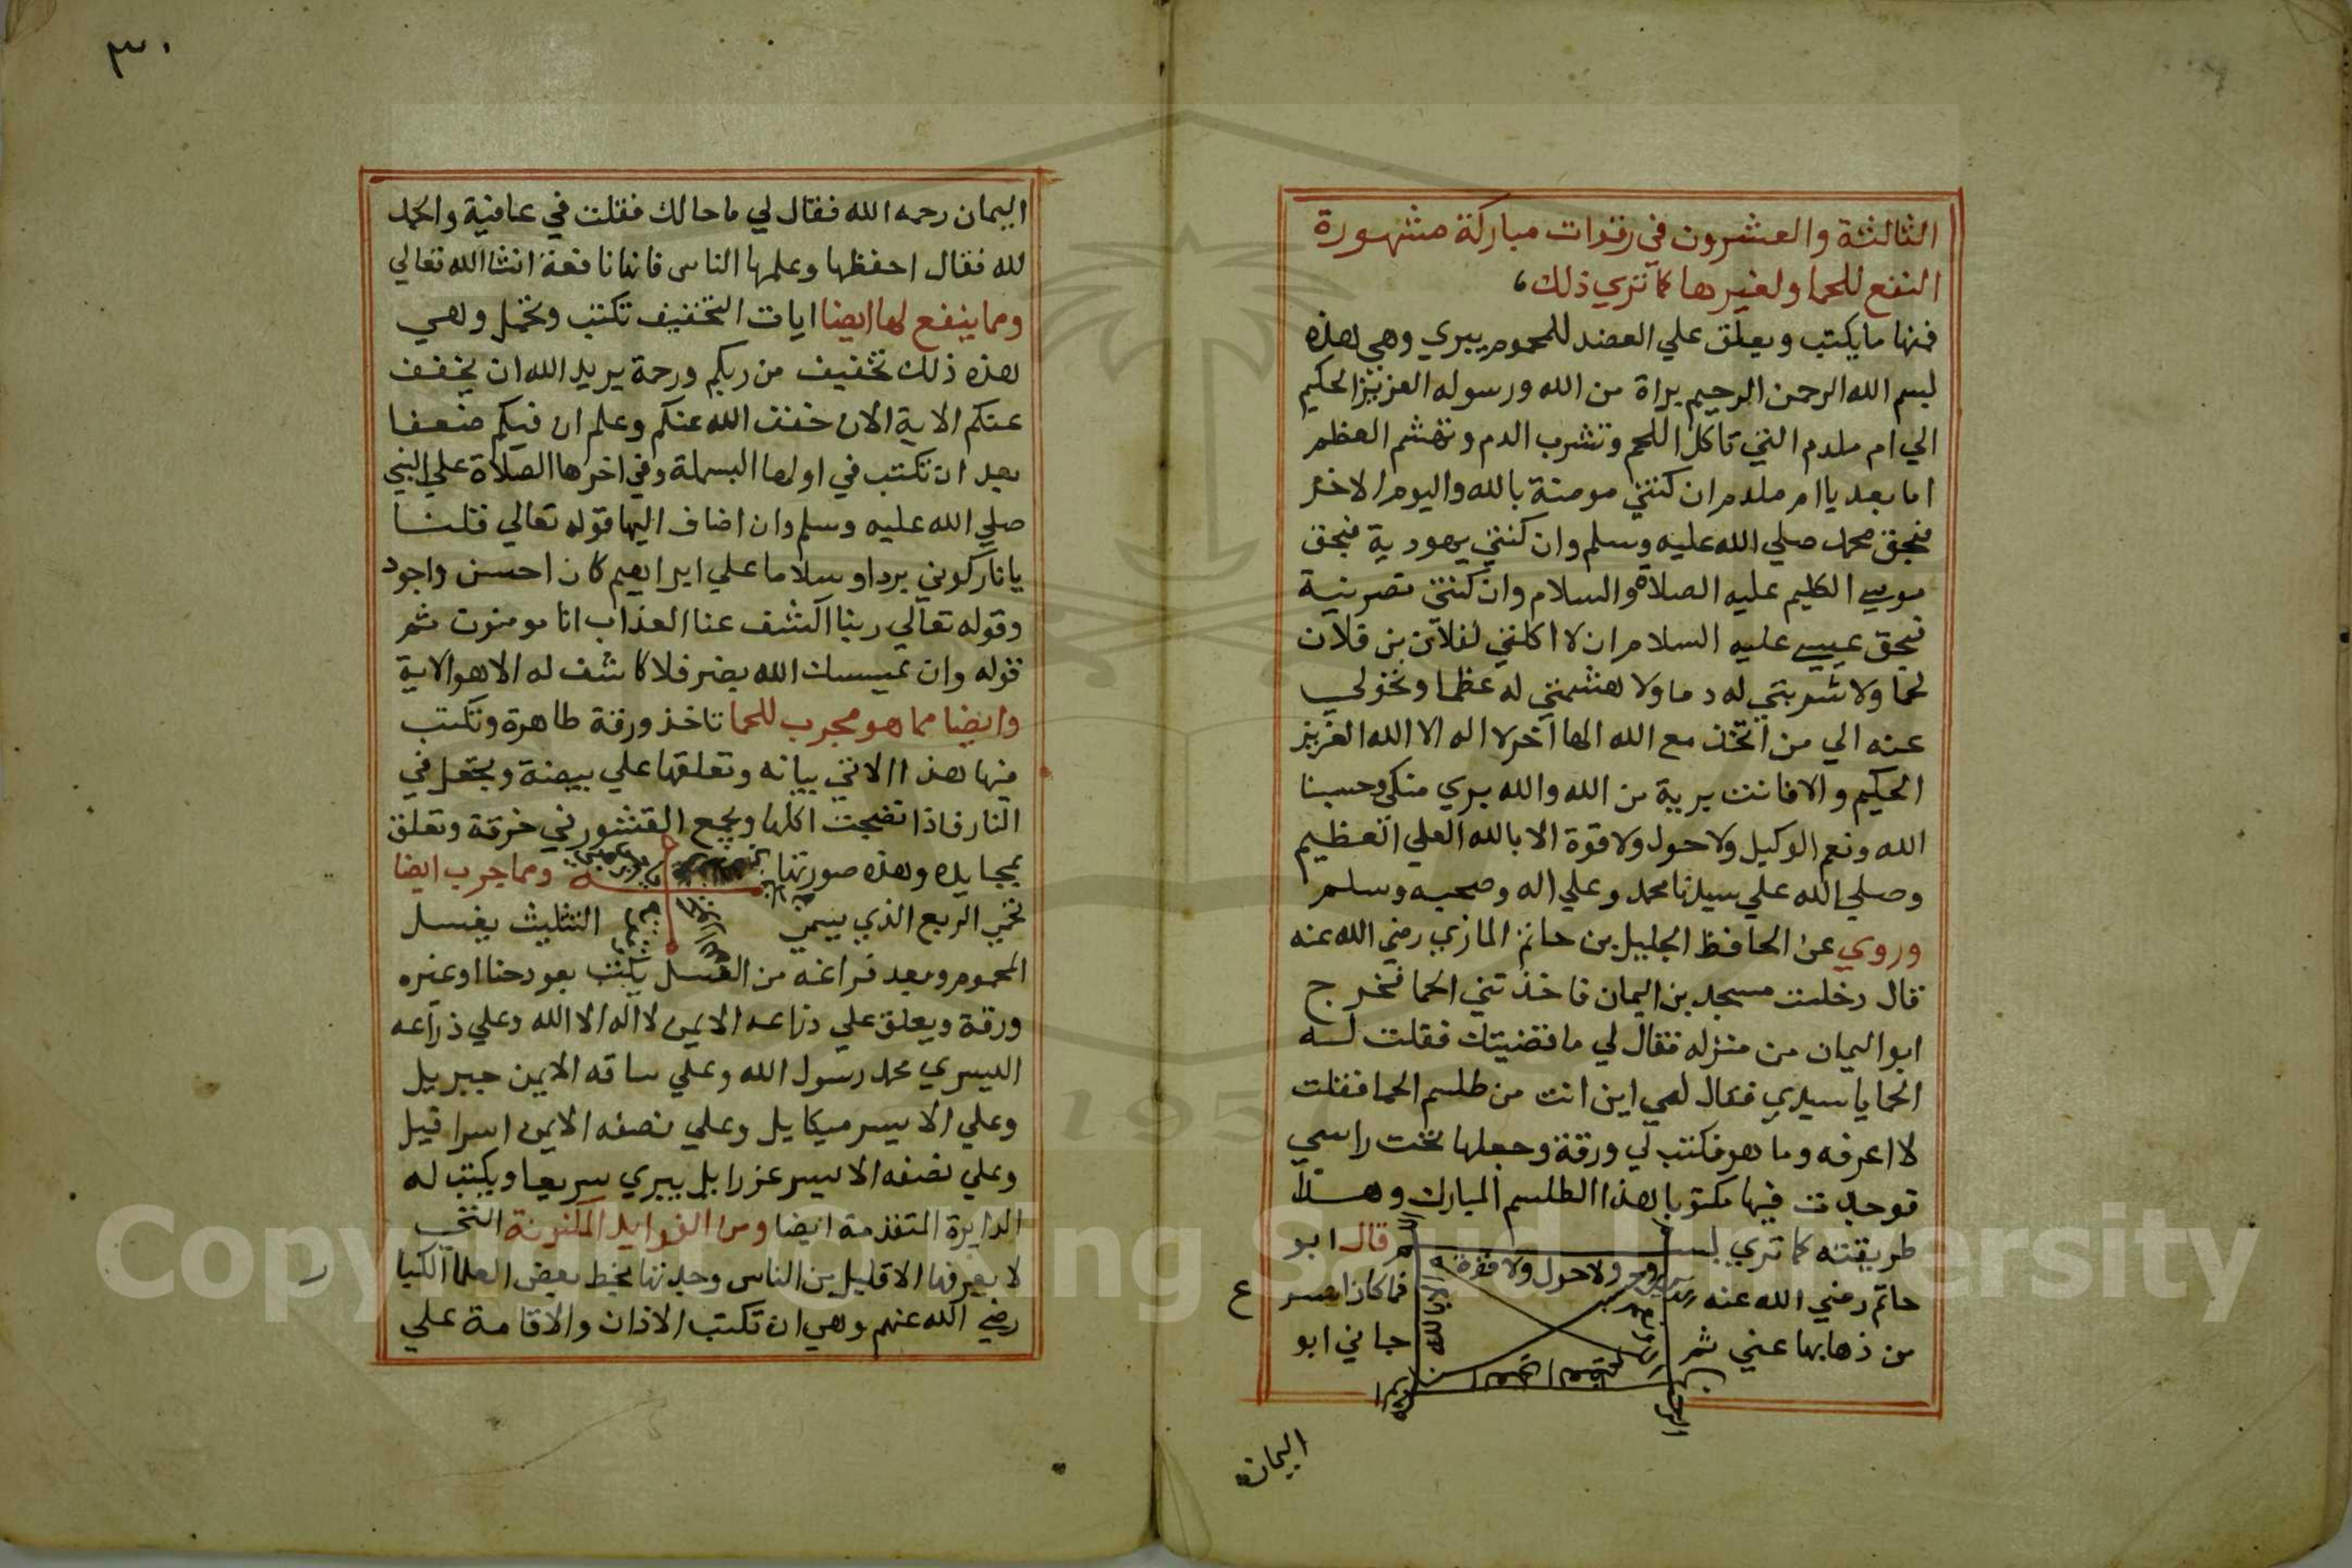 الثالثة والعشرون في رقوات مباركة مشهورة
النفع للحما ولغيرها كما تري ذلك
فمنها ما يكتب ويعلق علي العضد للمحموم يبري وهي هذه
بسم الله الرحمن الرحيم براة من الله ورسوله العزيز الحكيم
الي ام ملدم التي تاكل اللحم وتشرب الدم وتهشم العظم
اما بعد يا ام ملدم ان كنتي مومنة بالله واليوم الاخر
فبحق محمد صلي الله عليه وسلم وان كنتي يهودية فبحق
موسي الكليم عليه الصلاة والسلام وان كنتي نصرنية
فبحق عيسي عليه السلام ان لا اكلتي لفلان بن فلان
لحما ولا شربتي له دما ولا هشمتي له عظما وتحولي
عنه الي من اتخذ مع الله الها آخر لا اله الا الله العزيز
الحكيم والا فانت برية من الله والله بري منكي وحسبنا
الله ونعم الوكيل ولا حول ولا قوة الا بالله العلي العظيم
وصلي الله علي سيدنا محمد وعلي اله وصحبه وسلم
وروي عن الحافظ الجليل بن حاتم المازي رضي الله عنه
قال دخلت مسجد بن اليمان فاخذتني الحما فخرج
ابو اليمان من منزله فقال لي ما قضيتك فقلت له
الحما يا سيدي فقال لي اين انت من طلسم الحما فقلت
لا اعرفه وما هو فكتب لي ورقة وجعلها تحت راسي
فوجدت فيها مكتوبا هذا الطلسم المبارك وهذا
طريقته كما تري بسم قال ابو
ولا حول ولا قوة الا بالله
حاتم رضي الله عنه فما كان اسر ع
من ذهابها عني ثم جاني ابو
اليمان
٣٠
اليمان رحمه الله فقال لي ما حالك فقلت في عافية والحمد
لله فقال احفظها وعلمها الناس فانها نافعة انشا الله تعالي
ومما ينفع لها ايضا ايات التخفيف تكتب وتحمل وهي
هذه ذلك تخفيف من ربكم ورحمة يريد الله ان يخفف
عنكم الاية الان خفف الله عنكم وعلم ان فيكم ضعفا
بعد ان تكتب في اولها البسملة وفي اخرها الصلاة علي النبي
صلي الله عليه وسلم وان اضاف اليها قوله تعالي قلنا
يا نار كوني بردا وسلاما علي ابراهيم كان احسن واجود
وقوله تعالي ربنا اكشف عنا العذاب انا مومنون ثم
قوله وان يمسسك الله بضر فلا كاشف له الا هو الاية
وايضا مما هو مجرب للحما تاخذ ورقة طاهرة وتكتب
فيها هذا الاتي بيانه وتعلقها علي بيضة وتجعل في
النار فاذا نضجت اكلها ويجمع القشور في خرقة وتعلق
وهذه صورتها ومما جرب ايضا
لحمي الربع الذي يسمي التثليث يغسل
المحموم وبعد فراغه من الغسل يكتب بعود حنا او غيره
ورقة ويعلق علي ذراعه الايمن لا اله الا الله وعلي ذراعه
اليسري محمد رسول الله وعلي ساقه الايمن جبريل
وعلي الايسر ميكايل وعلي نصفه الايمن اسرافيل
وعلي نصفه الايسر عزرايل يبري سريعا ويكتب له
الدايرة المتقدمة ايضا ومن الفوايد المكنونة التي
لا يعرفها الا قليل من الناس وجدتها بخط بعض العلما الكبا ر
رضي الله عنهم وهي ان تكتب الاذان والاقامة علي
Copyright © King Saud University
1957